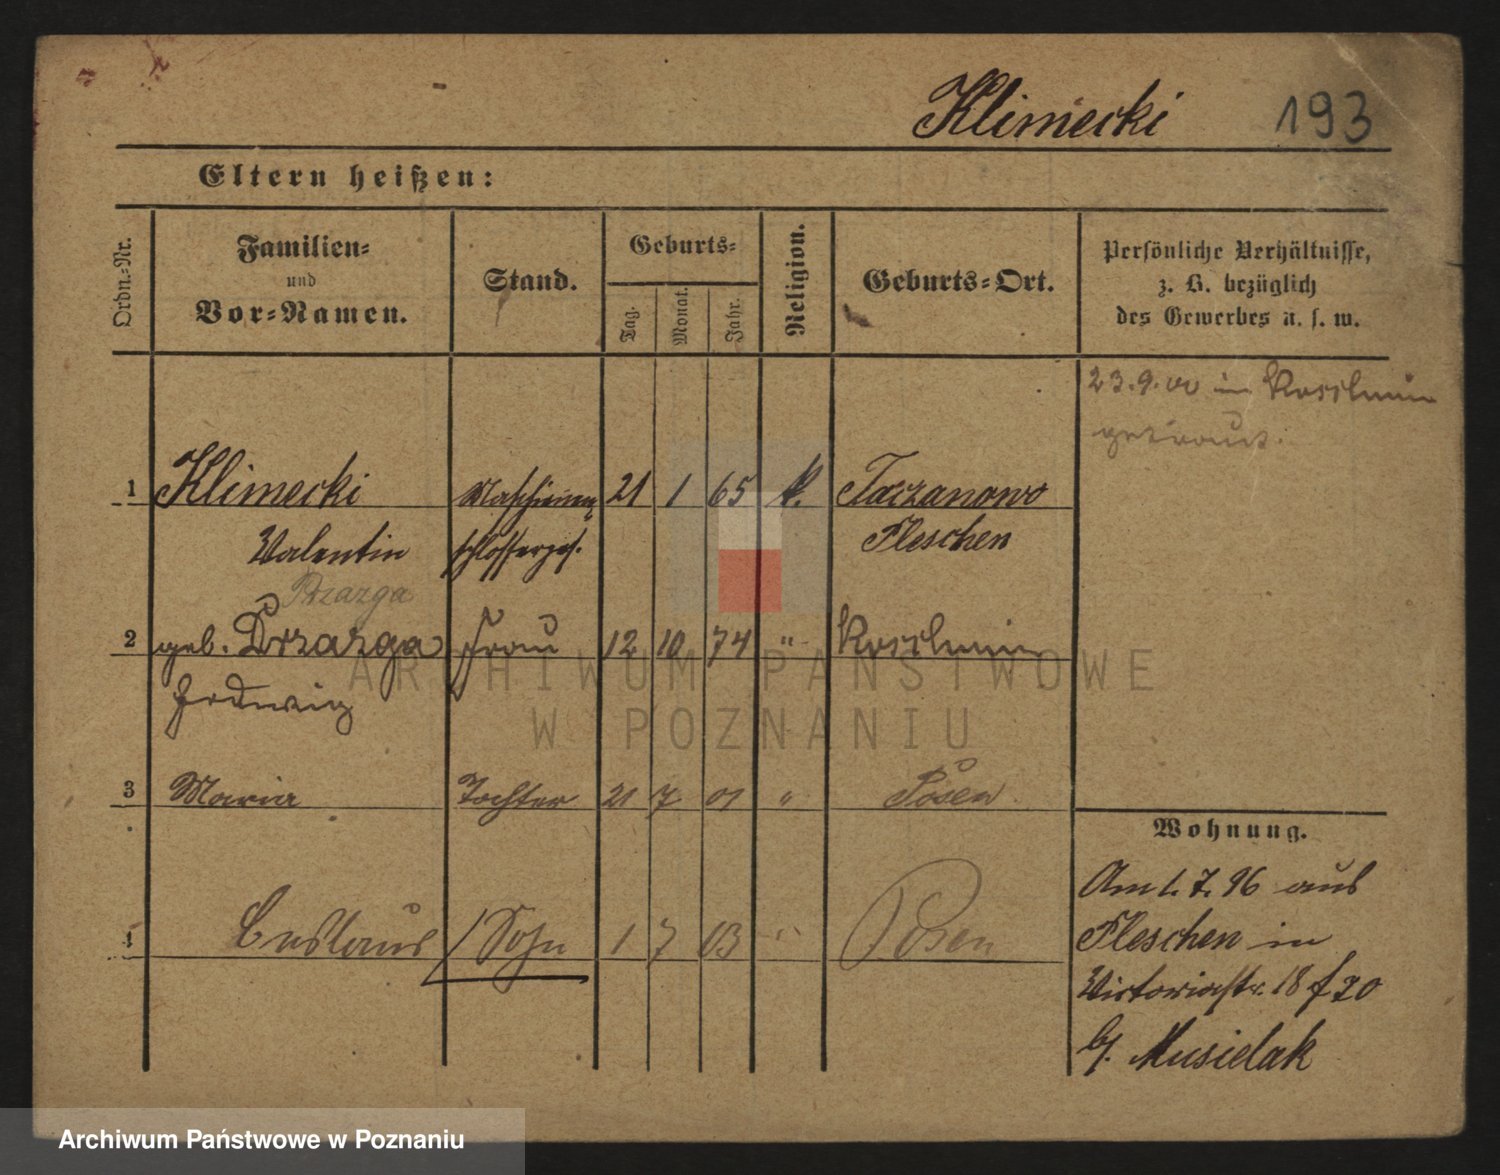 Klimecki 193
Eltern heißen:
Ordn.-Nr.
Familien-
und
Vor-Namen.
Stand.
Geburts-
Tag. Monat. Jahr.
Religion.
Geburts-Ort.
Persönliche Verhältnisse,
z. B. bezüglich
des Gewerbes u. s. w.
23.9.00 in Koschmin
getraut.
1 Klimecki Maschinen 21 1 65 k. Taczanowo
Valentin schlosserges. Pleschen
Drzazga
2 geb. Drzazga Frau 12 10 74 " Koschmin
Hedwig
3 Maria Tochter 21 7 01 " Posen
4 Ceslaus Sohn 1 7 03 " Posen
Wohnung.
Am 1. 7. 96 aus
Pleschen in
Victoriastr. 18 f 20
b/. Musielak
ARCHIWUM PAŃSTWOWE
W POZNANIU
Archiwum Państwowe w Poznaniu